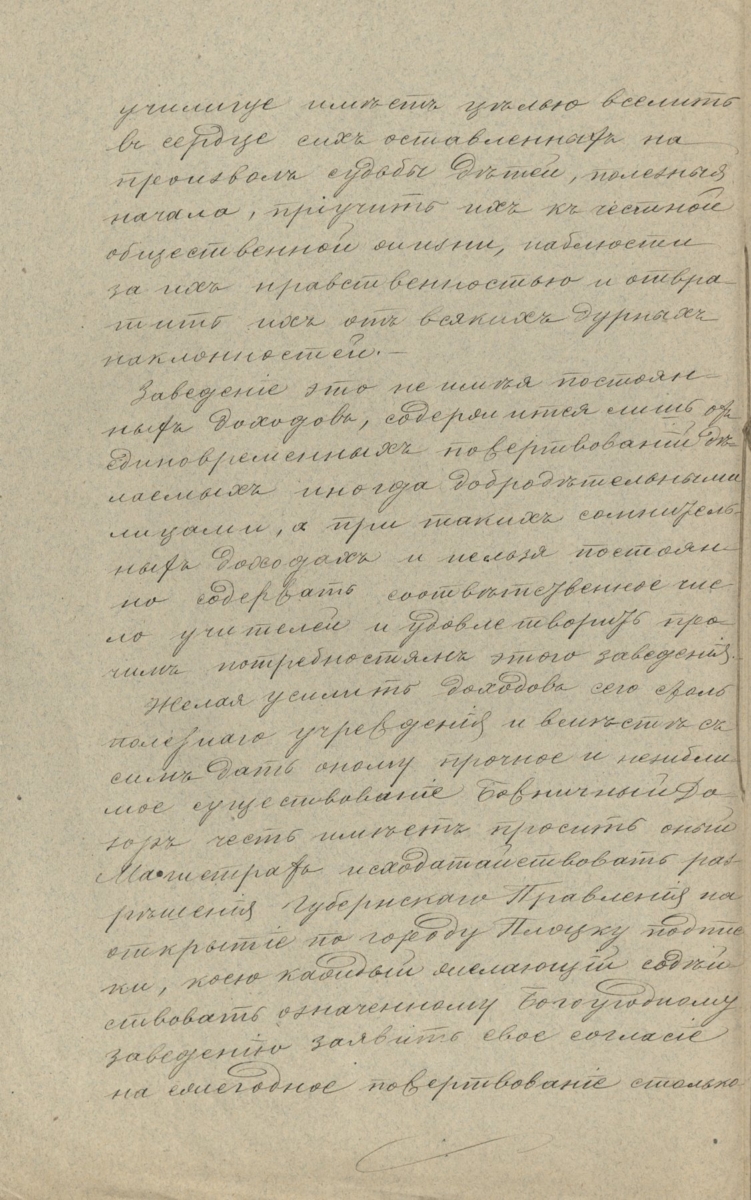 училище имѣетъ цѣлью вселить
въ сердце сихъ оставленныхъ на
произволъ судьбы дѣтей, полезныя
начала, пріучить ихъ къ честной
общественной жизни, наблюсти
за ихъ нравственностью и отвра-
тить ихъ отъ всякихъ дурныхъ
наклонностей. —
Заведеніе это не имѣя постоян-
ныхъ доходовъ, содержится лишь отъ
единовременныхъ пожертвованій дѣ-
лаемыхъ иногда добродѣтельными
лицами, а при такихъ сомнитель-
ныхъ доходахъ и нельзя постоян-
но содержать соотвѣтственное чис-
ло учителей и удовлетворить про-
чимъ потребностямъ этого заведенія.
Желая усилить доходовъ сего столь
полезнаго учрежденія и вмѣстѣ съ
симъ дать оному прочное и непобли-
мое существованіе Божничный До-
зоръ честь имѣетъ просить оный
Магистратъ исходатайствовать раз-
рѣшенія Губернскаго Правленія на
открытіе по городу Плоцку подпис
ки, коею каждый желающій содѣй
ствовать означенному Богоугодному
заведенію заявитъ свое согласіе
на ежегодное пожертвованіе столько